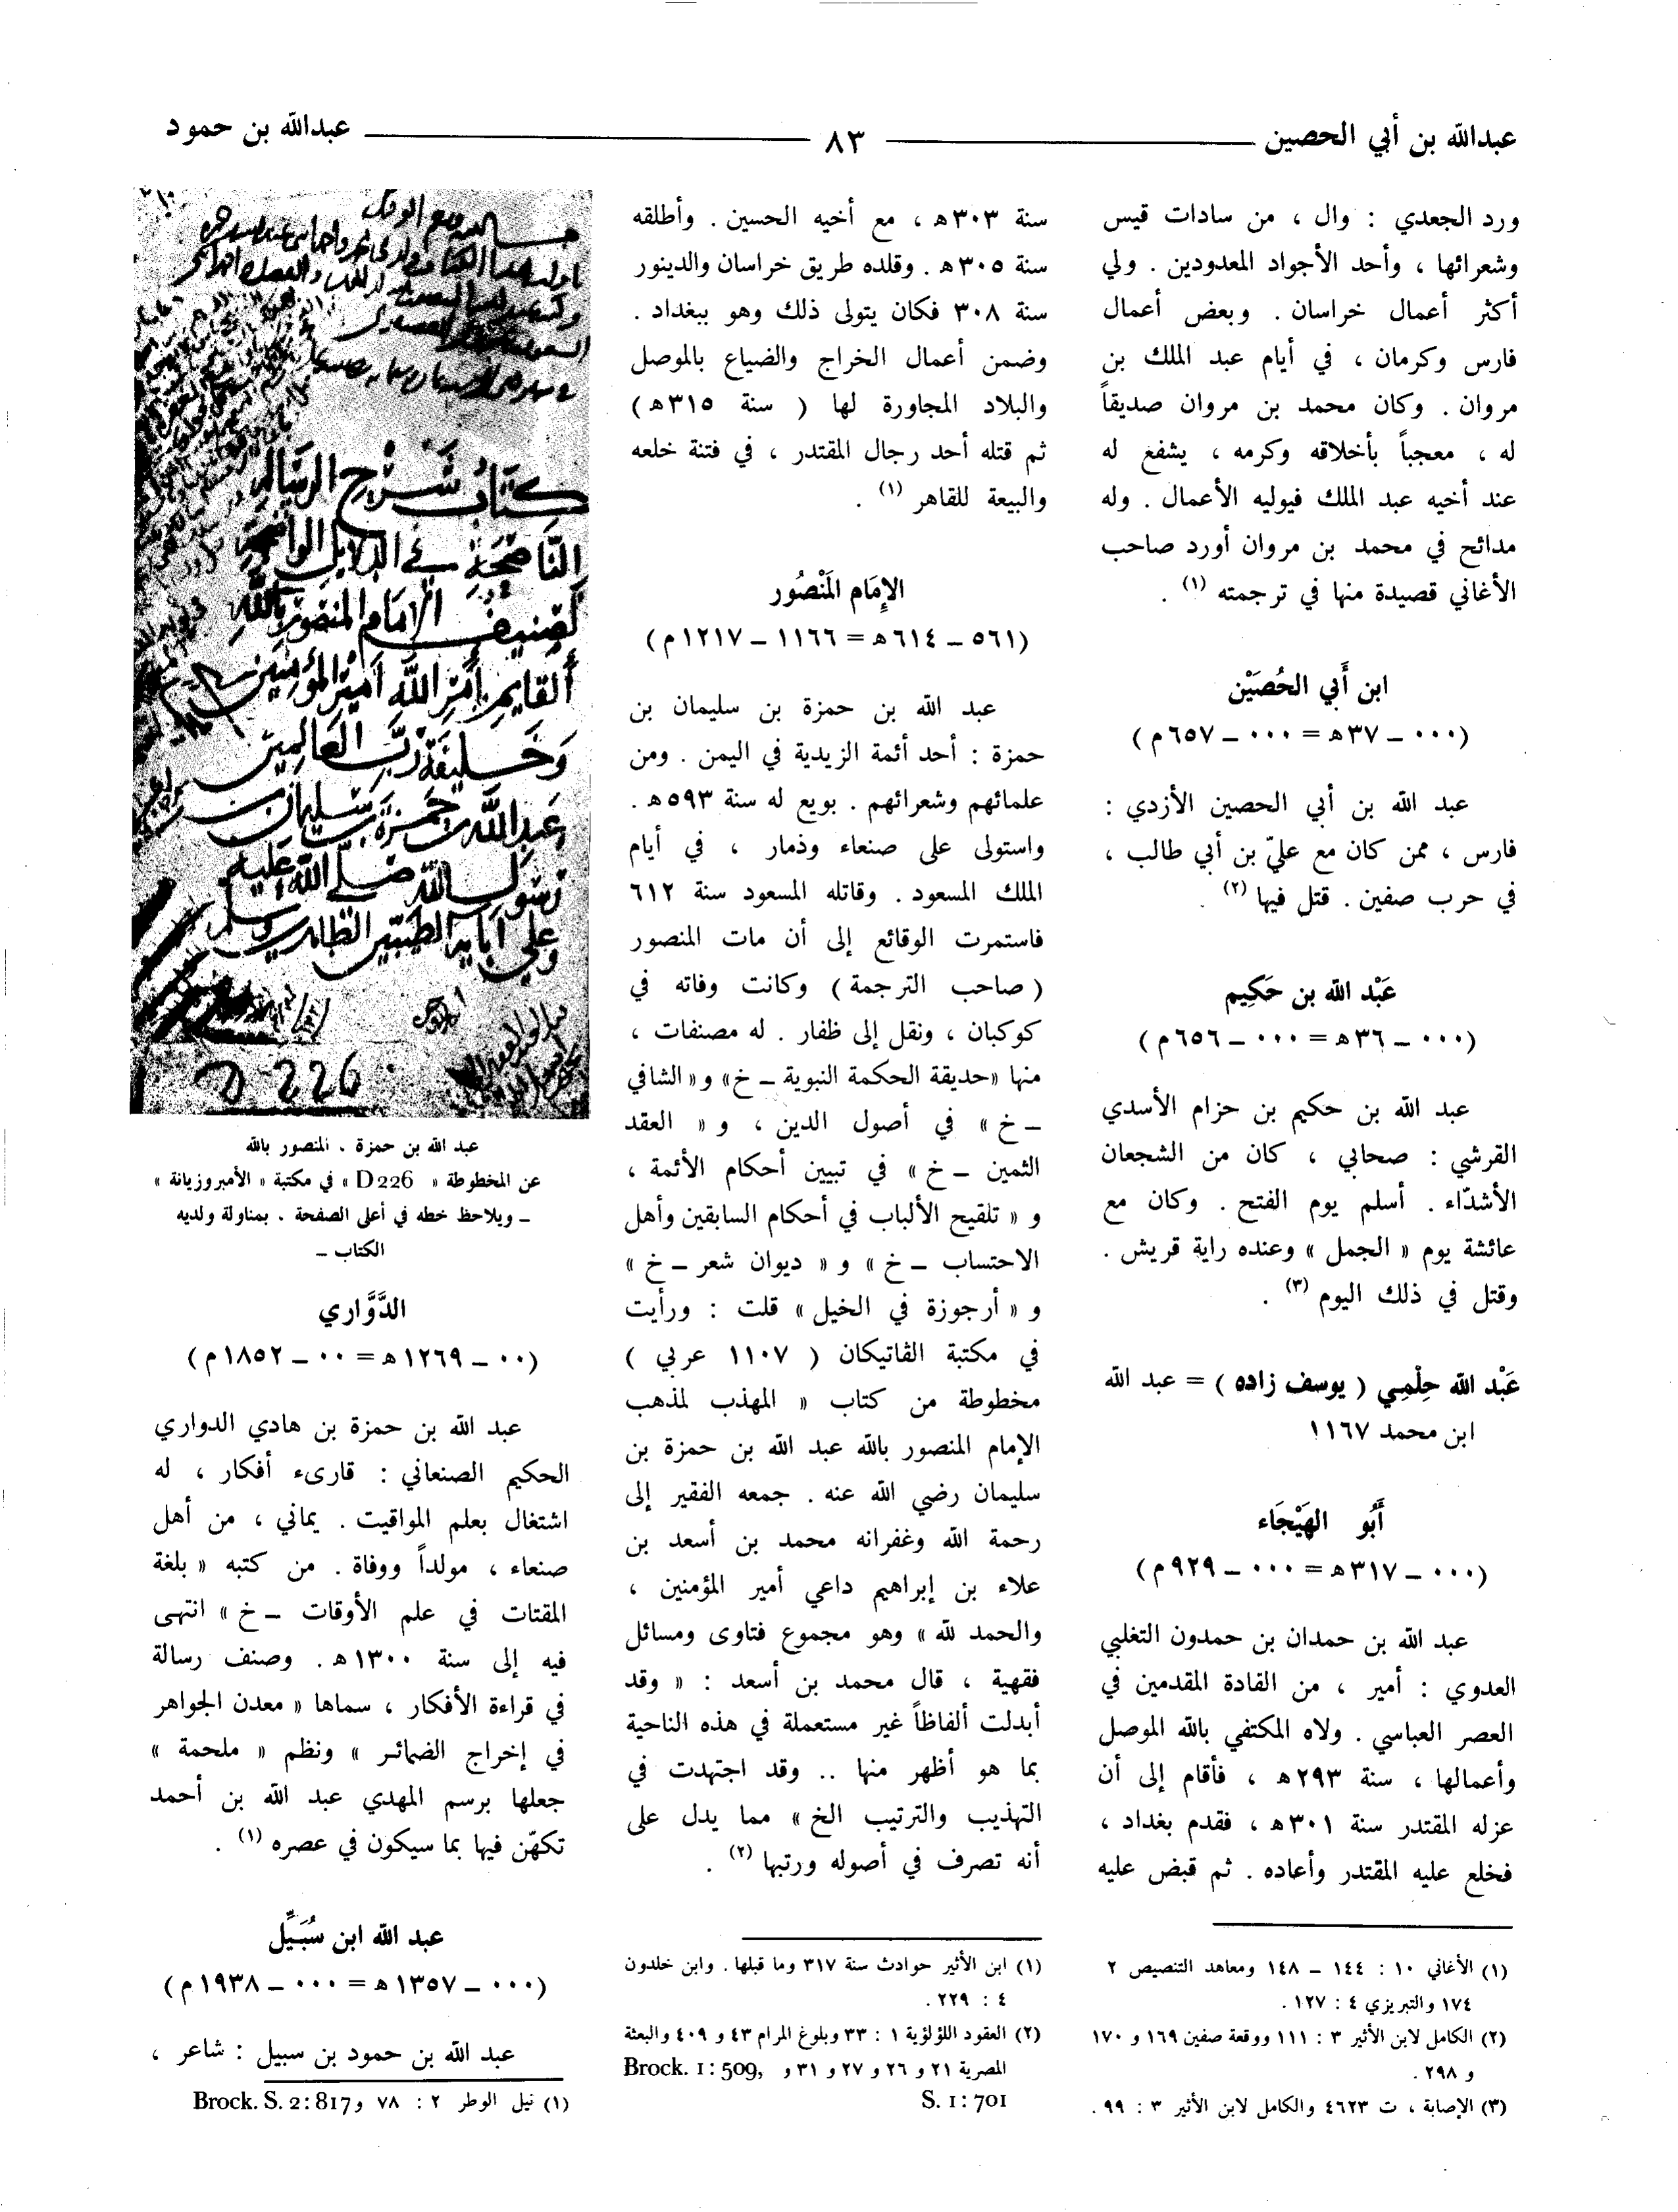 عبدالله بن أبي الحصين
٨٣
عبدالله بن حمود
ورد الجعدي : وال ، من سادات قيس
وشعرائها ، وأحد الأجواد المعدودين . ولي
أكثر أعمال خراسان . وبعض أعمال
فارس وكرمان ، في أيام عبد الملك بن
مروان . وكان محمد بن مروان صديقاً
له ، معجباً بأخلاقه وكرمه ، يشفع له
عند أخيه عبد الملك فيوليه الأعمال . وله
مدائح في محمد بن مروان أورد صاحب
الأغاني قصيدة منها في ترجمته (١) .
ابن أَبي الحُصَيْن
(٠٠٠ ــ ٣٧ هـ = ٠٠٠ ــ ٦٥٧ م)
عبد الله بن أبي الحصين الأزدي :
فارس ، ممن كان مع عليّ بن أبي طالب ،
في حرب صفين . قتل فيها (٢) .
عَبْد الله بن حَكِيم
(٠٠٠ ــ ٣٦ هـ = ٠٠٠ ــ ٦٥٦ م)
عبد الله بن حكيم بن حزام الأسدي
القرشي : صحابي ، كان من الشجعان
الأشدّاء . أسلم يوم الفتح . وكان مع
عائشة يوم « الجمل » وعنده راية قريش .
وقتل في ذلك اليوم (٣) .
عَبْد الله حِلْمِي ( يوسف زاده ) = عبد الله
ابن محمد ١١٦٧
أَبُو الهَيْجَاء
(٠٠٠ ــ ٣١٧ هـ = ٠٠٠ ــ ٩٢٩ م)
عبد الله بن حمدان بن حمدون التغلبي
العدوي : أمير ، من القادة المقدمين في
العصر العباسي . ولاه المكتفي بالله الموصل
وأعمالها ، سنة ٢٩٣ هـ ، فأقام إلى أن
عزله المقتدر سنة ٣٠١ هـ ، فقدم بغداد ،
فخلع عليه المقتدر وأعاده . ثم قبض عليه
(١) الأغاني ١٠ : ١٤٤ ــ ١٤٨ ومعاهد التنصيص ٢
١٧٤ والتبريزي ٤ : ١٢٧ .
(٢) الكامل لابن الأثير ٣ : ١١١ ووقعة صفين ١٦٩ و ١٧٠
و ٢٩٨ .
(٣) الإصابة ، ت ٤٦٢٣ والكامل لابن الأثير ٣ : ٩٩ .
سنة ٣٠٣ هـ ، مع أخيه الحسين . وأطلقه
سنة ٣٠٥ هـ . وقلده طريق خراسان والدينور
سنة ٣٠٨ فكان يتولى ذلك وهو ببغداد .
وضمن أعمال الخراج والضياع بالموصل
والبلاد المجاورة لها ( سنة ٣١٥ هـ )
ثم قتله أحد رجال المقتدر ، في فتنة خلعه
والبيعة للقاهر (١) .
الإمَام المَنْصُور
(٥٦١ ــ ٦١٤ هـ = ١١٦٦ ــ ١٢١٧ م)
عبد الله بن حمزة بن سليمان بن
حمزة : أحد أئمة الزيدية في اليمن . ومن
علمائهم وشعرائهم . بويع له سنة ٥٩٣ هـ .
واستولى على صنعاء وذمار ، في أيام
الملك المسعود . وقاتله المسعود سنة ٦١٢
فاستمرت الوقائع إلى أن مات المنصور
( صاحب الترجمة ) وكانت وفاته في
كوكبان ، ونقل إلى ظفار . له مصنفات ،
منها «حديقة الحكمة النبوية ــ خ» و«الشافي
ــ خ » في أصول الدين ، و « العقد
الثمين ــ خ » في تبيين أحكام الأئمة ،
و « تلقيح الألباب في أحكام السابقين وأهل
الاحتساب ــ خ» و « ديوان شعر ــ خ »
و « أرجوزة في الخيل » قلت : ورأيت
في مكتبة الڤاتيكان ( ١١٠٧ عربي )
مخطوطة من كتاب « المهذب لمذهب
الإمام المنصور بالله عبد الله بن حمزة بن
سليمان رضي الله عنه . جمعه الفقير إلى
رحمة الله وغفرانه محمد بن أسعد بن
علاء بن إبراهيم داعي أمير المؤمنين ،
والحمد لله » وهو مجموع فتاوى ومسائل
فقهية ، قال محمد بن أسعد : « وقد
أبدلت ألفاظاً غير مستعملة في هذه الناحية
بما هو أظهر منها .. وقد اجتهدت في
التهذيب والترتيب الخ » مما يدل على
أنه تصرف في أصوله ورتبها (٢) .
(١) ابن الأثير حوادث سنة ٣١٧ وما قبلها . وابن خلدون
٤ : ٢٢٩ .
(٢) العقود اللؤلؤية ١ : ٣٣ وبلوغ المرام ٤٣ و ٤٠٩ والبعثة
المصرية ٢١ و ٢٦ و ٢٧ و ٣١ و Brock. 1: 509,
S. 1: 701
كتاب شرح الرسالة
الناصحة في الدلايل الواضحة
تصنيف الإمام المنصور بالله
القايم بأمر الله أمير المؤمنين
وخليفة رب العالمين
عبد الله بن حمزة بن سليمان بن
رسول الله صلى الله عليه وسلم
وعلى آبايه الطيبين الطاهرين
D 226
عبد الله بن حمزة . المنصور بالله
عن المخطوطة « D 226 » في مكتبة « الأمبروزيانة »
ــ ويلاحظ خطه في أعلى الصفحة . بمناولة ولديه
الكتاب ــ
الدَّوَّاري
(٠٠ ــ ١٢٦٩ هـ = ٠٠ ــ ١٨٥٢ م)
عبد الله بن حمزة بن هادي الدواري
الحكيم الصنعاني : قارىء أفكار ، له
اشتغال بعلم المواقيت . يماني ، من أهل
صنعاء ، مولداً ووفاة . من كتبه « بلغة
المقتات في علم الأوقات ــ خ » انتهى
فيه إلى سنة ١٣٠٠ هـ . وصنف رسالة
في قراءة الأفكار ، سماها « معدن الجواهر
في إخراج الضمائر » ونظم « ملحمة »
جعلها برسم المهدي عبد الله بن أحمد
تكهّن فيها بما سيكون في عصره (١) .
عبد الله ابن سُبَيِّل
(٠٠٠ ــ ١٣٥٧ هـ = ٠٠٠ ــ ١٩٣٨ م)
عبد الله بن حمود بن سبيل : شاعر ،
(١) نيل الوطر ٢ : ٧٨ و Brock. S. 2: 817